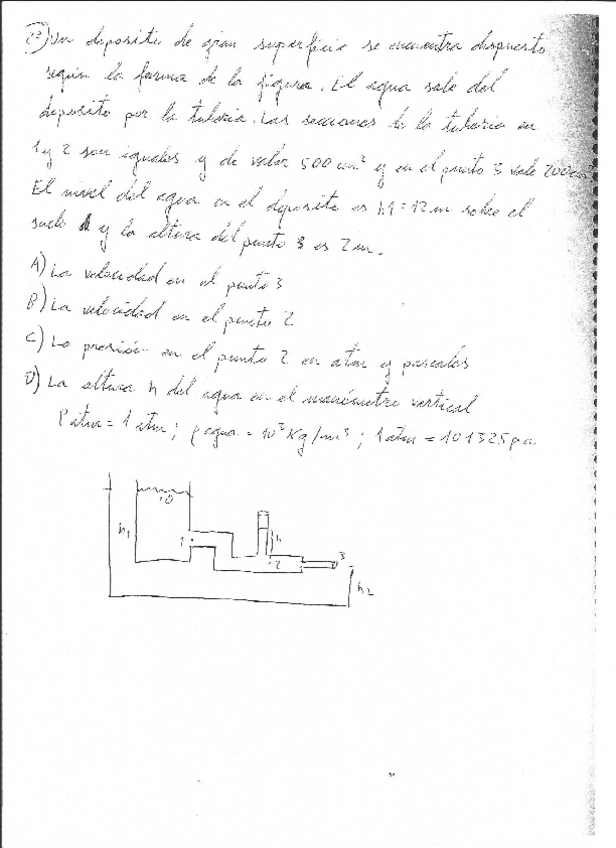 2º) Un deposito de gran superficie se encuentra dispuesto
según la forma de la figura. El agua sale del
deposito por la tuberia. Las secciones de la tuberia en
1 y 2 son iguales y de valor 500 cm² y en el punto 3 vale 200 cm²
El nivel del agua en el deposito es h1 = 12 m sobre el
suelo y la altura del punto 3 es 2 m.
A) La velocidad en el punto 3
B) La velocidad en el punto 2
C) La presión en el punto 2 en atm y pascales
D) La altura h del agua en el manómetro vertical
Patm = 1 atm ; ρ agua = 10³ Kg/m³ ; 1 atm = 101325 pa
0
h1
1
h
2
3
h2